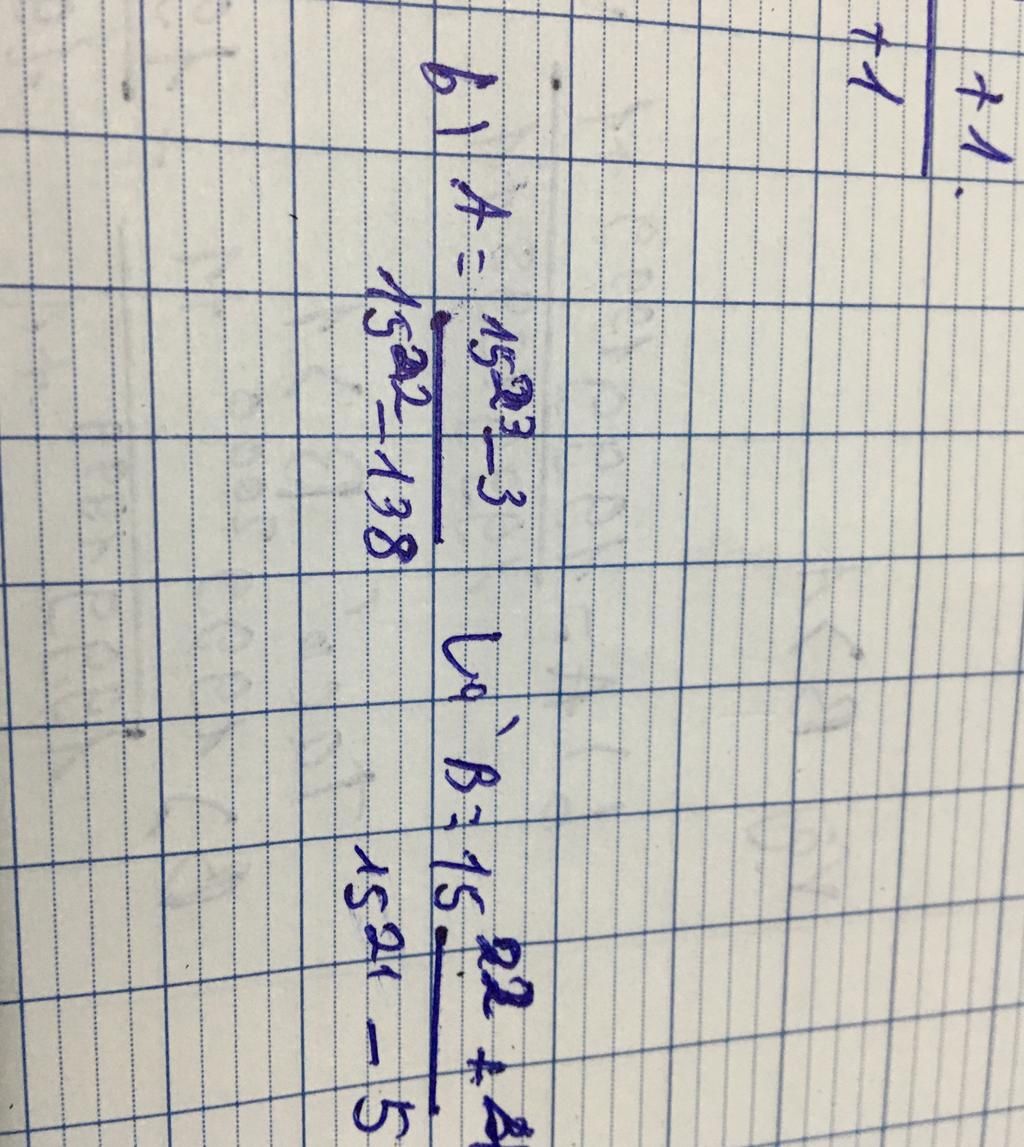 +1.
+1
b) A = 15²³ - 3
15²² - 138
và B = 15²² +
15²¹ - 5